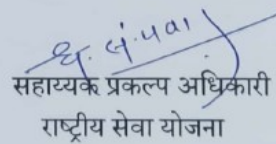 ध. सं. पवा
सहाय्यक प्रकल्प अधिकारी
राष्ट्रीय सेवा योजना